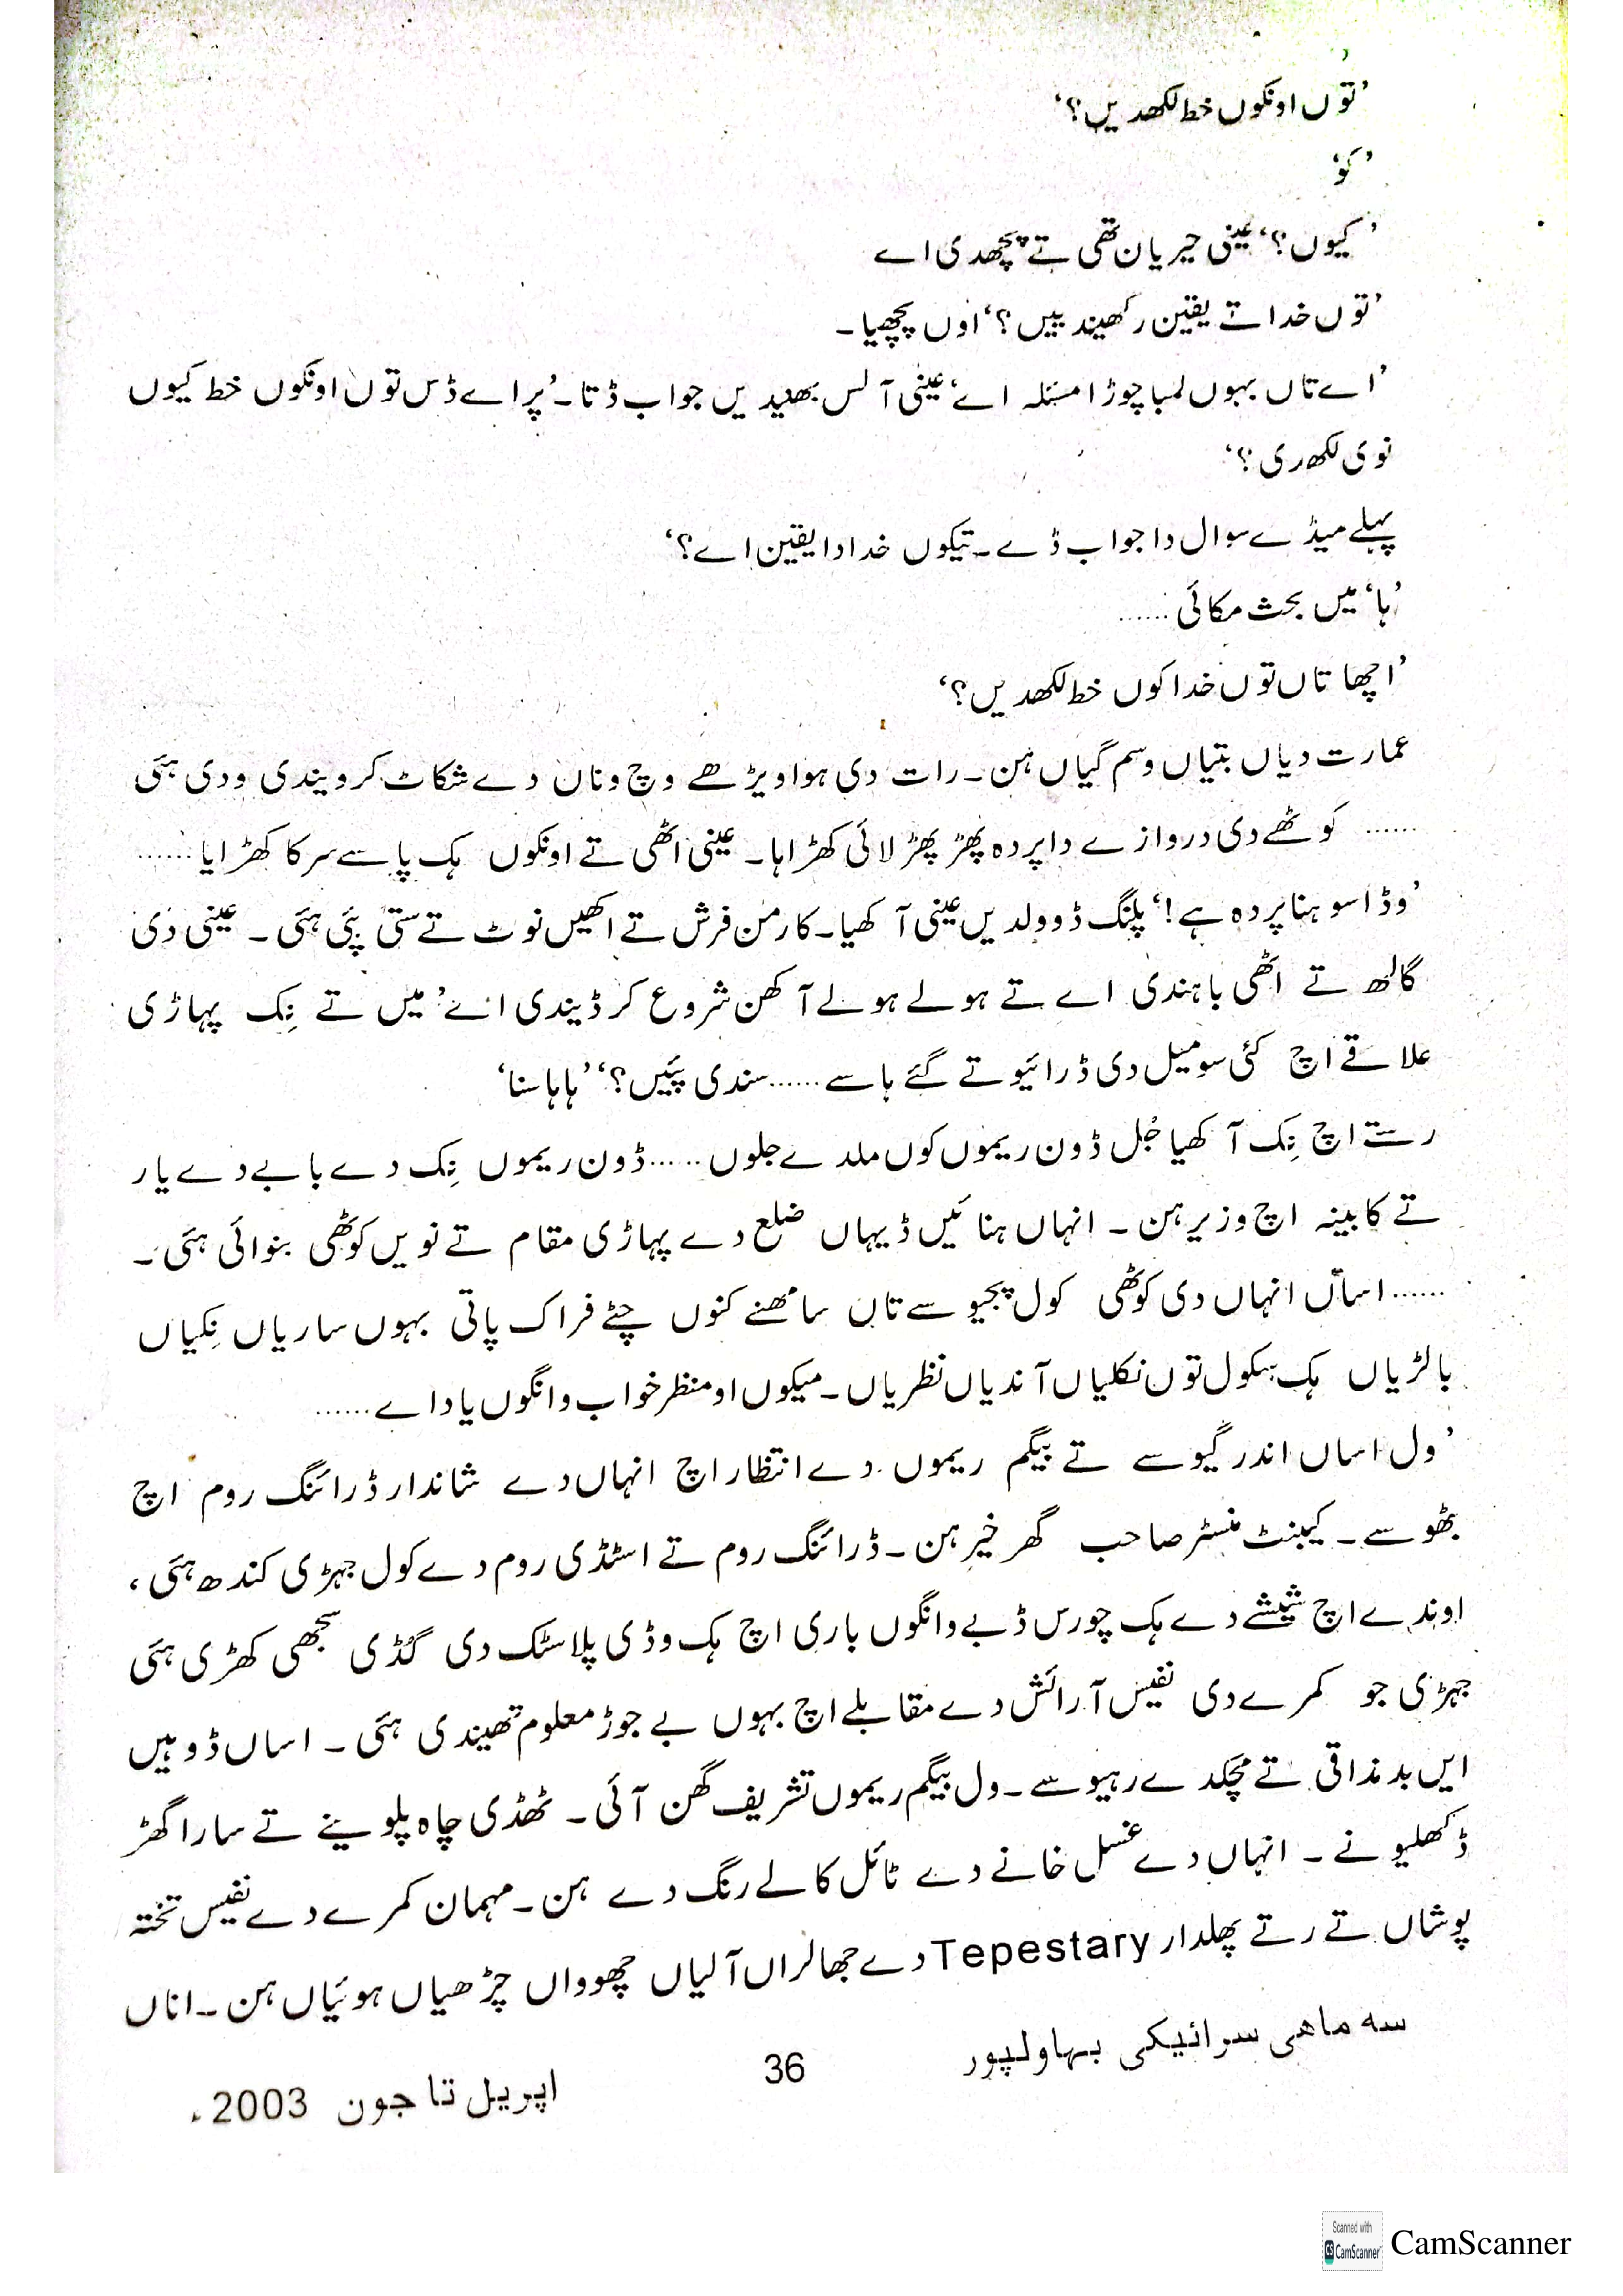 ’توں اونکوں خط لکھدیں؟‘
’کو‘
’کیوں؟‘ عینی حیریان تھی تے پچھدی اے
’توں خدا تے یقین رکھیندییں؟‘ اوں پچھیا۔
’اے تاں بہوں لمبا چوڑا مسئلہ اے‘ عینی آلس بھنیدیں جواب ڈتا۔ ’پر اے ڈس توں اونکوں خط کیوں
نوی لکھری؟‘
پہلے میڈے سوال دا جواب ڈے۔ تیکوں خدا دا یقین اے؟‘
’ہا‘ میں بحث مکائی ......
’اچھا تاں توں خدا کوں خط لکھدیں؟‘
عمارت دیاں بتیاں وسم گیاں ہن۔ رات دی ہوا ویڑھے وچ ونان دے شکاٹ کرویندی ودی ہئی
...... کوٹھے دی دروازے دا پردہ پھڑ پھڑ لائی کھڑا ہا۔ عینی اٹھی تے اونکوں ہک پاسے سرکا کھڑایا ......
’وڈا سوہنا پردہ ہے!‘ پلنگ ڈو ولدیں عینی آکھیا۔ کارمن فرش تے اکھیں نوٹ تے ستی پئی ہئی۔ عینی دی
گالھ تے اٹھی باہندی اے تے ہولے ہولے آکھن شروع کر ڈیندی اے ’میں تے نِک پہاڑی
علاقے اچ کئی سو میل دی ڈرائیو تے گئے ہاسے ...... سندی پئیں؟‘ ’ہا ہا سنا‘
رستے اچ نِک آکھیا جُل ڈون ریموں کوں ملدے جلوں ...... ڈون ریموں نِک دے بابے دے یار
تے کابینہ اچ وزیر ہن۔ انہاں ہنائیں ڈیہاں ضلع دے پہاڑی مقام تے نویں کوٹھی بنوائی ہئی۔
...... اساں انہاں دی کوٹھی کول پجیوسے تاں سامھنے کنوں چٹے فراک پاتی بہوں ساریاں نِکیاں
بالڑیاں ہک ہکول توں نکلیاں آندیاں نظریاں۔ میکوں او منظر خواب وانگوں یاد اے ......
’ول اساں اندر گیوسے تے بیگم ریموں دے انتظار اچ انہاں دے شاندار ڈرائنگ روم اچ
بٹھوسے۔ کیبنٹ منسٹر صاحب گھر خیر ہن۔ ڈرائنگ روم تے اسٹڈی روم دے کول جہڑی کندھ ہئی،
اوندے اچ شیشے دے ہک چورس ڈبے وانگوں باری اچ ہک وڈی پلاسٹک دی گڈی سجھی کھڑی ہئی
جہڑی جو کمرے دی نفیس آرائش دے مقابلے اچ بہوں بے جوڑ معلوم تھیندی ہئی۔ اساں ڈوہیں
ایں بدمذاقی تے مچکدے رہیوسے۔ ول بیگم ریموں تشریف گھن آئی۔ ٹھڈی چاہ پلوینے تے سارا گھر
ڈکھلیونے۔ انہاں دے غسل خانے دے ٹائل کالے رنگ دے ہن۔ مہمان کمرے دے نفیس تختہ
پوشاں تے رتے پھلدار Tepestary دے جھالراں آلیاں چھوواں چڑھیاں ہوئیاں ہن۔ اناں
سہ ماهی سرائیکی بہاولپور 36 اپریل تا جون 2003ء
Scanned with CamScanner
CamScanner